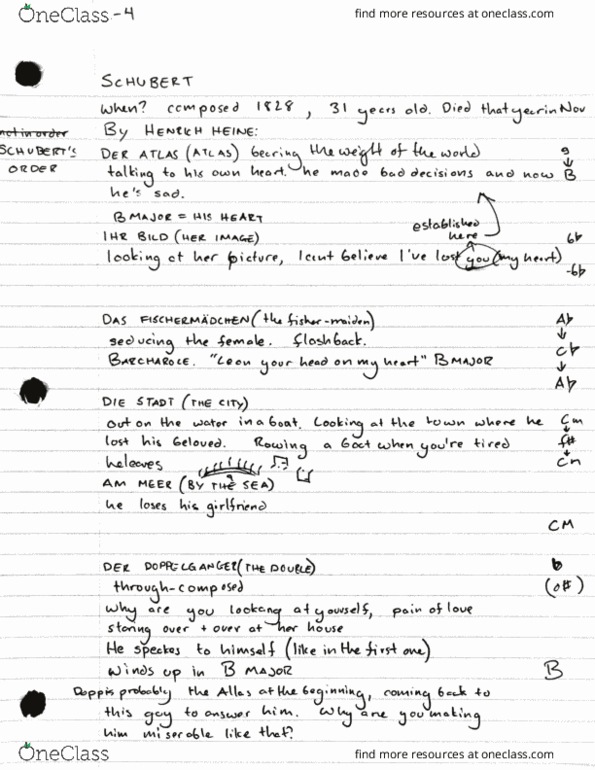 OneClass - 4
find more resources at oneclass.com
SCHUBERT
when? composed 1828, 31 years old. Died that year in Nov
not in order
By HENRICH HEINE:
SCHUBERT'S
ORDER
DER ATLAS (ATLAS) bearing the weight of the world
g
↓
B
talking to his own heart. he made bad decisions and now
he's sad.
B MAJOR = HIS HEART
established
here
IHR BILD (HER IMAGE)
6b
looking at her picture, I cant believe I've lost you (my heart)
-6b
DAS FISCHERMÄDCHEN (the fisher-maiden)
Ab
↓
seducing the female. flashback.
Cb
↓
BARCHAROLE. "Lean your head on my heart" B MAJOR
Ab
DIE STADT (THE CITY)
out on the water in a boat. Looking at the town where he
Cm
↓
lost his beloved. Rowing a boat when you're tired
f#
↓
he leaves
Cm
AM MEER (BY THE SEA)
he loses his girlfriend
CM
DER DOPPELGANGER (THE DOUBLE)
b
through-composed
(d#)
why are you looking at yourself, pain of love
staring over + over at her house
He speakes to himself (like in the first one)
winds up in B MAJOR
B
Dopp is probably the Atlas at the beginning, coming back to
this guy to answer him. Why are you making
him miserable like that?
OneClass
find more resources at oneclass.com